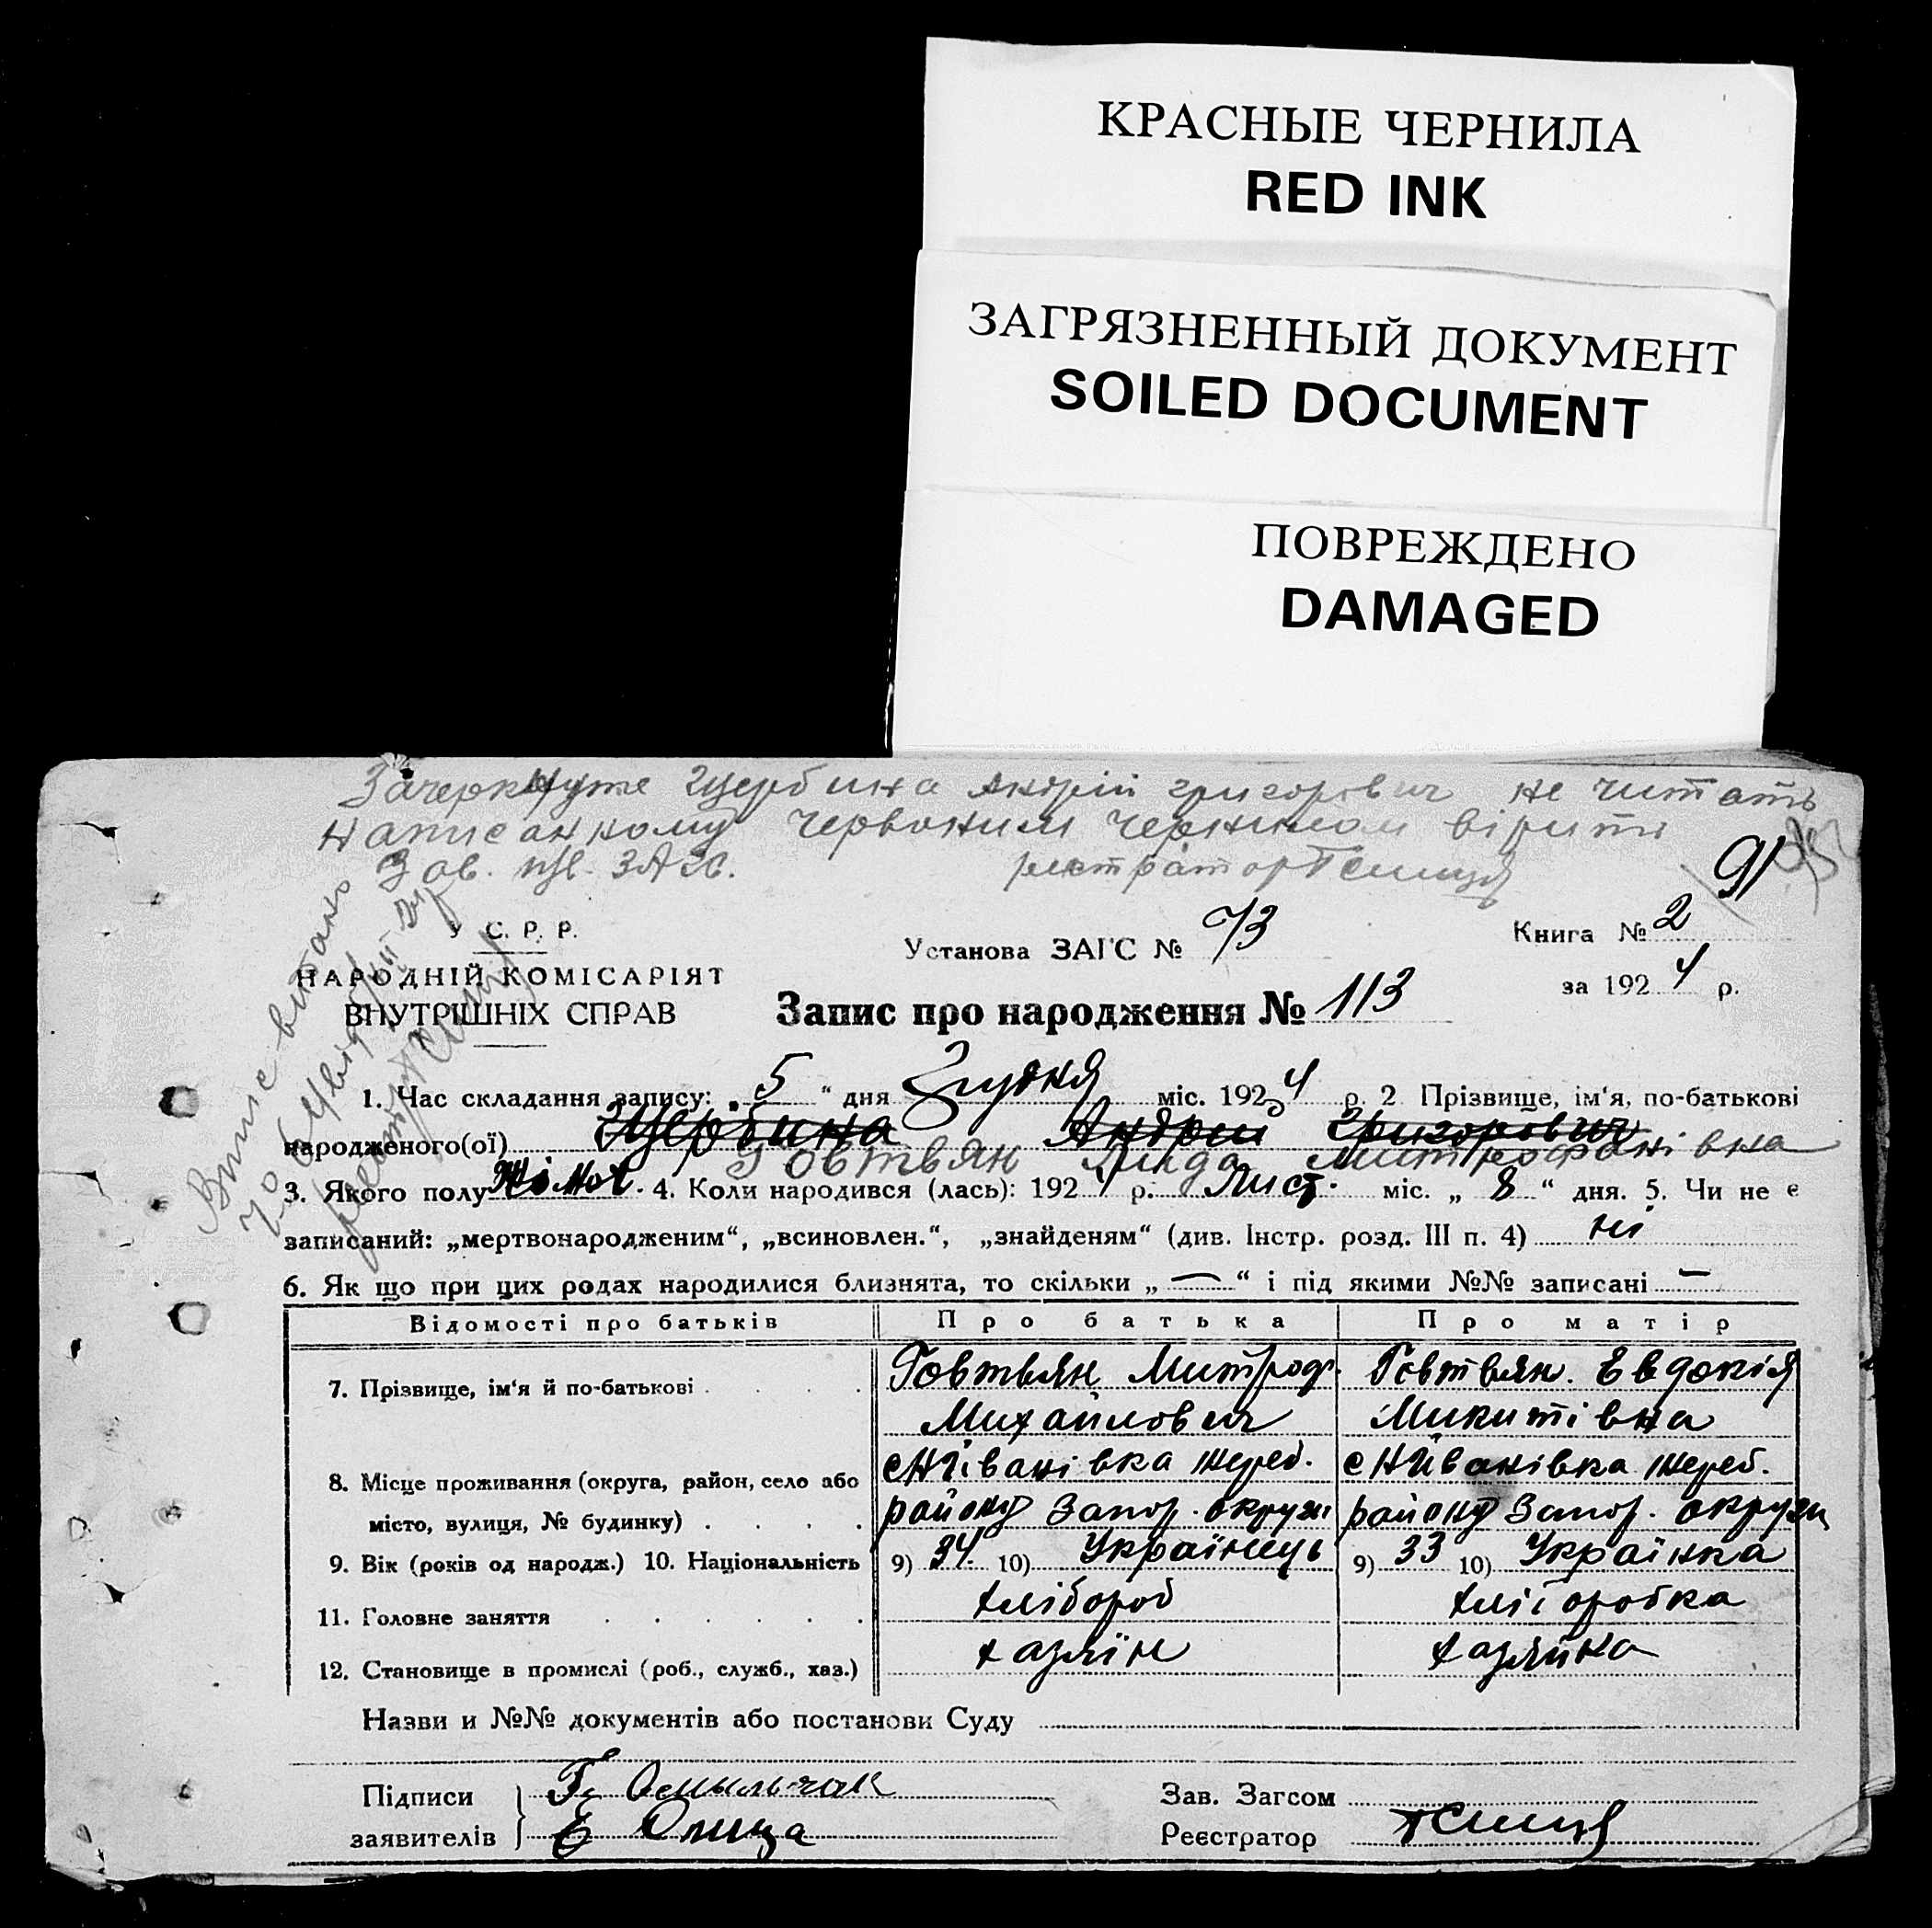 КРАСНЫЕ ЧЕРНИЛА
RED INK
ЗАГРЯЗНЕННЫЙ ДОКУМЕНТ
SOILED DOCUMENT
ПОВРЕЖДЕНО
DAMAGED
Зачеркнуте Щербина Андрій Григорович не читать
написанному червоним чернилом вірити
Зав. ЗАГС. регстратор
91
Випис видано
У С. Р. Р.
НАРОДНІЙ КОМІСАРІЯТ
ВНУТРІШНІХ СПРАВ
Установа ЗАГС № 73
Книга № 2
за 1924 р.
Запис про народження № 113
1. Час складання запису: „ 5 “ дня Грудня міс. 1924 р. 2 Прізвище, ім‘я, по-батькові
народженого(ої) Щербина Андрій Григорович
Говтвян Лида Митрофанівна
3. Якого полу Жіноч. 4. Коли народився (лась): 1924 р. Лист. міс. „ 8 “ дня. 5. Чи не є
записаний: „мертвонародженим“, „всиновлен.“, „знайденям“ (див. Інстр. розд. III п. 4) ні
6. Як що при цих родах народилися близнята, то скільки „ — “ і під якими №№ записані —
Відомості про батьків Про батька Про матір
7. Прізвище, ім‘я й по-батькові Говтвян Митроф. Говтвян. Евдокія
Михайлович Микитівна
8. Місце проживання (округа, район, село або с Н Іванівка жереб. с Н Иванівка жереб.
місто, вулиця, № будинку) району Запор. округи району Запор. округи
9. Вік (років од народж.) 10. Національність 9) 34 10) Українець 9) 33 10) Українка
11. Головне заняття хлібороб хліборобка
12. Становище в промислі (роб., служб., хаз.) хазяїн хазяйка
Назви и №№ документів або постанови Суду
Підписи Г. Омыльчак Зав. Загсом
заявителів Е Олица Реєстратор